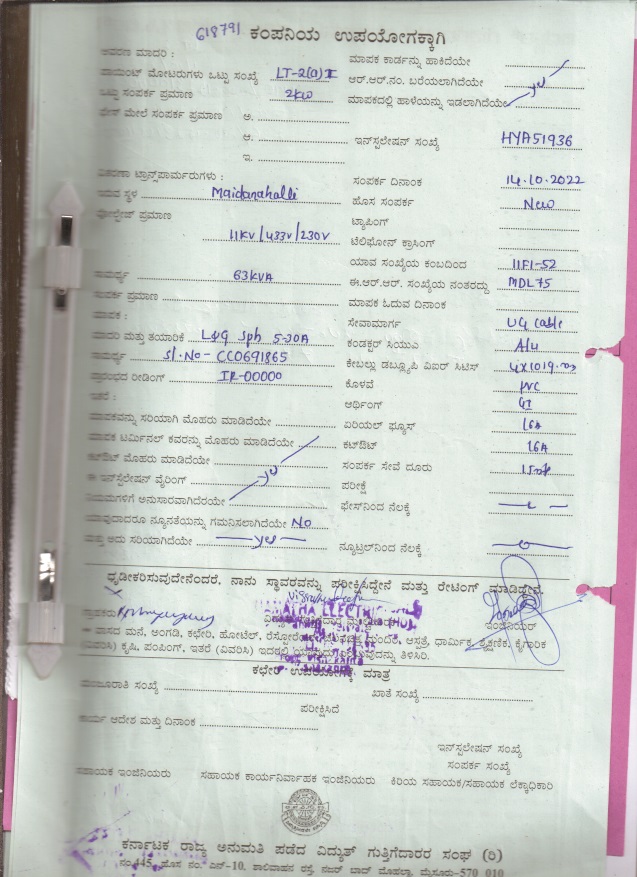 618791 ಕಂಪನಿಯ ಉಪಯೋಗಕ್ಕಾಗಿ
ಮಾದರಿ :
ಮಾಪಕ ಕಾರ್ಡನ್ನು ಹಾಕಿದೆಯೇ
ಪಾಯಿಂಟ್ ಮೋಟರುಗಳು ಒಟ್ಟು ಸಂಖ್ಯೆ LT-2(a)
ಆರ್.ಆರ್.ನಂ. ಬರೆಯಲಾಗಿದೆಯೇ yes
ಒಟ್ಟು ಸಂಪರ್ಕ ಪ್ರಮಾಣ 2kw
ಮಾಪಕದಲ್ಲಿ ಹಾಳೆಯನ್ನು ಇಡಲಾಗಿದೆಯೇ
ಮೇಲೆ ಸಂಪರ್ಕ ಪ್ರಮಾಣ ಅ.
ಆ.
ಇನ್‌ಸ್ಟಲೇಷನ್ ಸಂಖ್ಯೆ HYA51936
ಇ.
ಟ್ರಾನ್ಸ್‌ಫಾರ್ಮರುಗಳು :
ಸಂಪರ್ಕ ದಿನಾಂಕ 14.10.2022
ಇರುವ ಸ್ಥಳ Maidanahalli
ಹೊಸ ಸಂಪರ್ಕ New
ವೋಲ್ಟೇಜ್ ಪ್ರಮಾಣ
ಟ್ಯಾಪಿಂಗ್
11KV/433V/230V
ಟೆಲಿಫೋನ್ ಕ್ರಾಸಿಂಗ್
ಯಾವ ಸಂಖ್ಯೆಯ ಕಂಬದಿಂದ 11F1-52
ಸಾಮರ್ಥ್ಯ 63KVA
ಈ.ಆರ್.ಆರ್. ಸಂಖ್ಯೆಯ ನಂತರದ್ದು MDL75
ಸಂಪರ್ಕ ಪ್ರಮಾಣ
ಮಾಪಕ ಓದುವ ದಿನಾಂಕ
ಮಾಪಕ :
ಸೇವಾಮಾರ್ಗ UG Cable
ಮಾದರಿ ಮತ್ತು ತಯಾರಿಕೆ L&G Sph 5-30A
ಕಂಡಕ್ಟರ್ ಸಿಯುಎ
ಸಾಮರ್ಥ್ಯ Sl.No- CC0691865
ಕೇಬಲ್ಲು ಡಬ್ಲ್ಯೂಪಿ ವಿಐರ್ ಸಿಟಿಸ್
ಪ್ರಾರಂಭದ ರೀಡಿಂಗ್ IR-00000
ಕೊಳವೆ PVC
ಇತರೆ :
ಆರ್ಥಿಂಗ್ GI
ಮಾಪಕವನ್ನು ಸರಿಯಾಗಿ ಮೊಹರು ಮಾಡಿದೆಯೇ
ಏರಿಯಲ್ ಫ್ಯೂಸ್ 16A
ಮಾಪಕ ಟರ್ಮಿನಲ್ ಕವರನ್ನು ಮೊಹರು ಮಾಡಿದೆಯೇ
ಕಟ್‌ಔಟ್ 16A
ಕಟ್‌ಔಟ್ ಮೊಹರು ಮಾಡಿದೆಯೇ yes
ಸಂಪರ್ಕ ಸೇವೆ ದೂರು
ಈ ಇನ್‌ಸ್ಟಲೇಷನ್ ವೈರಿಂಗ್
ಪರೀಕ್ಷೆ
ನಿಯಮಗಳಿಗೆ ಅನುಸಾರವಾಗಿದೆಯೇ
ಫೇಸ್‌ನಿಂದ ನೆಲಕ್ಕೆ
ಯಾವುದಾದರೂ ನ್ಯೂನತೆಯನ್ನು ಗಮನಿಸಲಾಗಿದೆಯೇ No
ಮತ್ತು ಅದು ಸರಿಯಾಗಿದೆಯೇ yes
ನ್ಯೂಟ್ರಲ್‌ನಿಂದ ನೆಲಕ್ಕೆ
ಧೃಡೀಕರಿಸುವುದೇನೆಂದರೆ, ನಾನು ಸ್ಥಾವರವನ್ನು ಪರೀಕ್ಷಿಸಿದ್ದೇನೆ ಮತ್ತು ರೇಟಿಂಗ್ ಮಾಡಿದ್ದೇವೆ.
ಗ್ರಾಹಕರು
ಇಂಜಿನಿಯರ್
ವಾಸದ ಮನೆ, ಅಂಗಡಿ, ಕಛೇರಿ, ಹೋಟೆಲ್, ಮಂದಿರ, ಆಸ್ಪತ್ರೆ, ಧಾರ್ಮಿಕ, ಶೈಕ್ಷಣಿಕ, ಕೈಗಾರಿಕ
(ವಿವರಿಸಿ) ಕೃಷಿ, ಪಂಪಿಂಗ್, ಇತರೆ (ವಿವರಿಸಿ) ತಿಳಿಸಿರಿ.
ಕಛೇರಿ ಉಪಯೋಗಕ್ಕೆ ಮಾತ್ರ
ಮಂಜೂರಾತಿ ಸಂಖ್ಯೆ
ಖಾತೆ ಸಂಖ್ಯೆ
ಪರೀಕ್ಷಿಸಿದೆ
ಕಾರ್ಯ ಆದೇಶ ಮತ್ತು ದಿನಾಂಕ
ಇನ್‌ಸ್ಟಲೇಷನ್ ಸಂಖ್ಯೆ
ಸಂಪರ್ಕ ಸಂಖ್ಯೆ
ಸಹಾಯಕ ಇಂಜಿನಿಯರು ಸಹಾಯಕ ಕಾರ್ಯನಿರ್ವಾಹಕ ಇಂಜಿನಿಯರು ಕಿರಿಯ ಸಹಾಯಕ/ಸಹಾಯಕ ಲೆಕ್ಕಾಧಿಕಾರಿ
ಕರ್ನಾಟಕ ರಾಜ್ಯ ಅನುಮತಿ ಪಡೆದ ವಿದ್ಯುತ್ ಗುತ್ತಿಗೆದಾರರ ಸಂಘ (ರಿ)
ನಂ.445, ಹೊಸ ನಂ. ಎನ್-10, ಶಾಲಿವಾಹನ ರಸ್ತೆ, ನಜರ್ ಬಾದ್ ಮೊಹಲ್ಲಾ, ಮೈಸೂರು-570 010